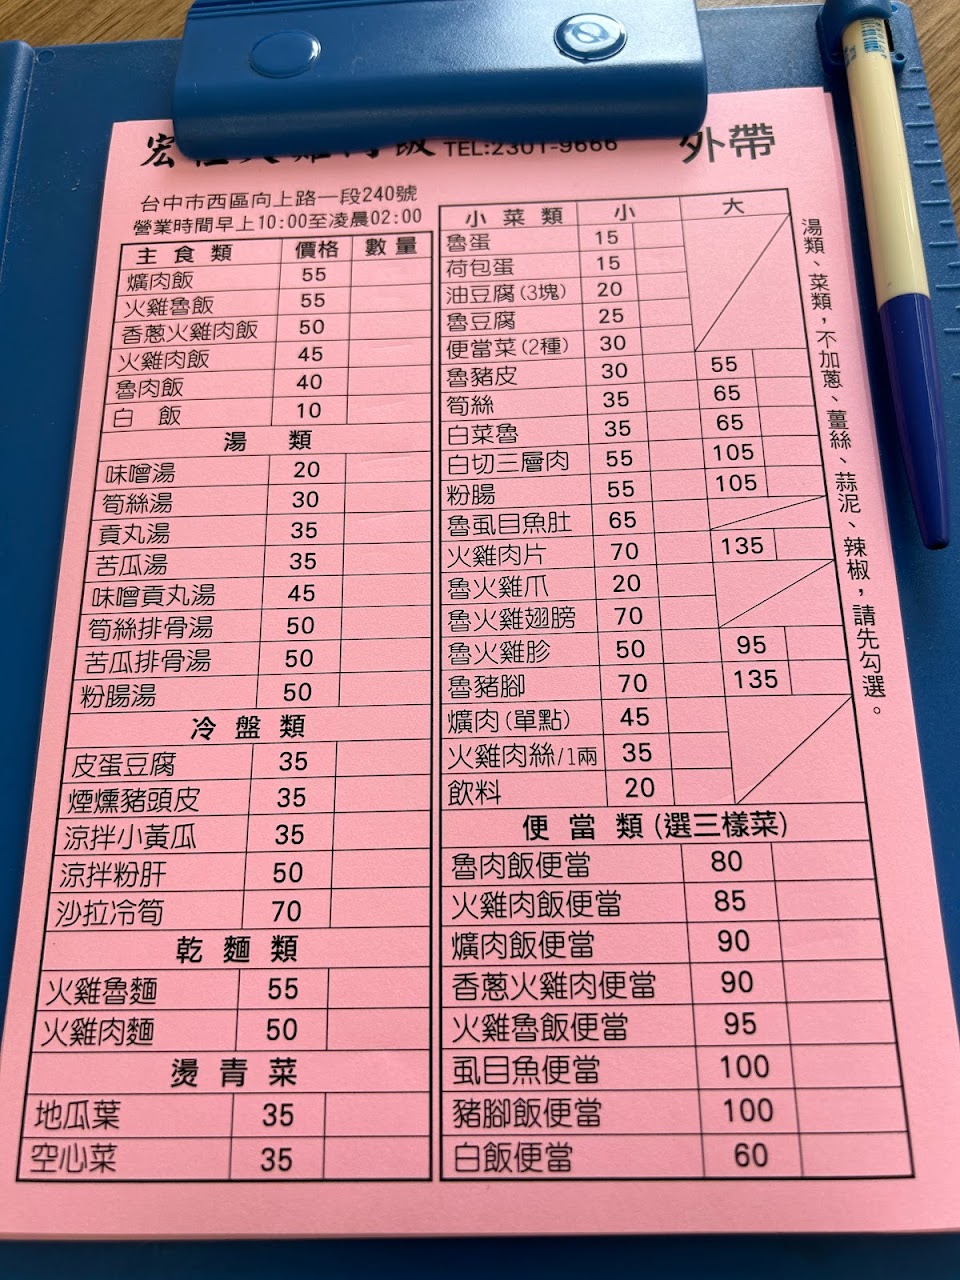 宏
TEL:2301-9666
外帶
台中市西區向上路一段240號
營業時間早上10:00至凌晨02:00
主食類 價格 數量
爌肉飯 55
火雞魯飯 55
香蔥火雞肉飯 50
火雞肉飯 45
魯肉飯 40
白飯 10
湯類
味噌湯 20
筍絲湯 30
貢丸湯 35
苦瓜湯 35
味噌貢丸湯 45
筍絲排骨湯 50
苦瓜排骨湯 50
粉腸湯 50
冷盤類
皮蛋豆腐 35
煙燻豬頭皮 35
涼拌小黃瓜 35
涼拌粉肝 50
沙拉冷筍 70
乾麵類
火雞魯麵 55
火雞肉麵 50
燙青菜
地瓜葉 35
空心菜 35
小菜類 小 大
魯蛋 15
荷包蛋 15
油豆腐(3塊) 20
魯豆腐 25
便當菜(2種) 30
魯豬皮 30 55
筍絲 35 65
白菜魯 35 65
白切三層肉 55 105
粉腸 55 105
魯虱目魚肚 65
火雞肉片 70 135
魯火雞爪 20
魯火雞翅膀 70
魯火雞胗 50 95
魯豬腳 70 135
爌肉(單點) 45
火雞肉絲/1兩 35
飲料 20
便當類(選三樣菜)
魯肉飯便當 80
火雞肉飯便當 85
爌肉飯便當 90
香蔥火雞肉便當 90
火雞魯飯便當 95
虱目魚便當 100
豬腳飯便當 100
白飯便當 60
湯類、菜類，不加蔥、薑絲、蒜泥、辣椒，請先勾選。